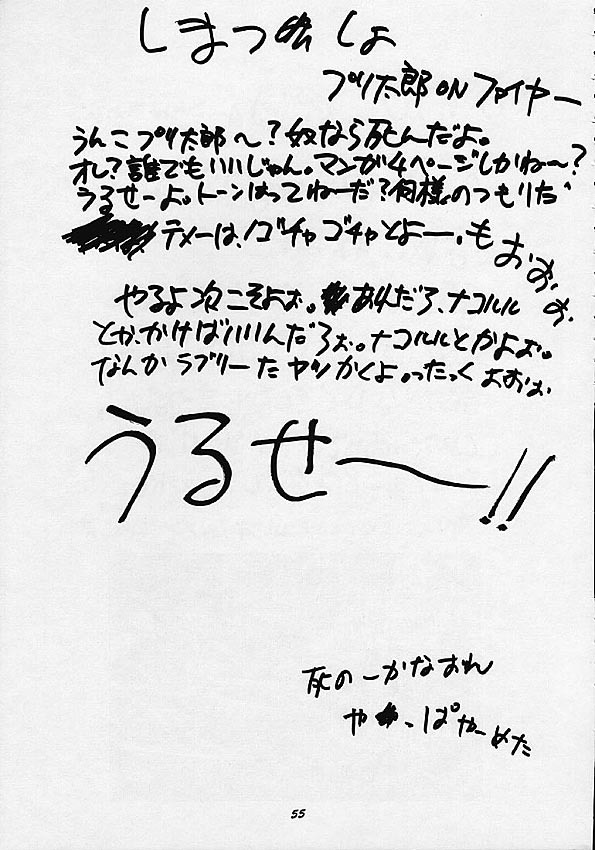 しまつ書しょ
プリ太郎ONファイヤー
うんこプリ太郎〜?奴なら死んだよ。
オレ?誰でもいいじゃん。マンガ4ページしかね〜?
うるせーよ。トーンはってねーだ?何様のつもりだ
テメーは、ゴチャゴチャとよー、もおおお、
やるよ次こそよぉ。あれだろ、ナコルル
とか、かけばいいんだろぉ。ナコルルとかよぉ。
なんかラブリーたヤツかくよ。ったっくよおぉ、
うるせ〜!!
死のーかなおれ
やっぱやーめた
55